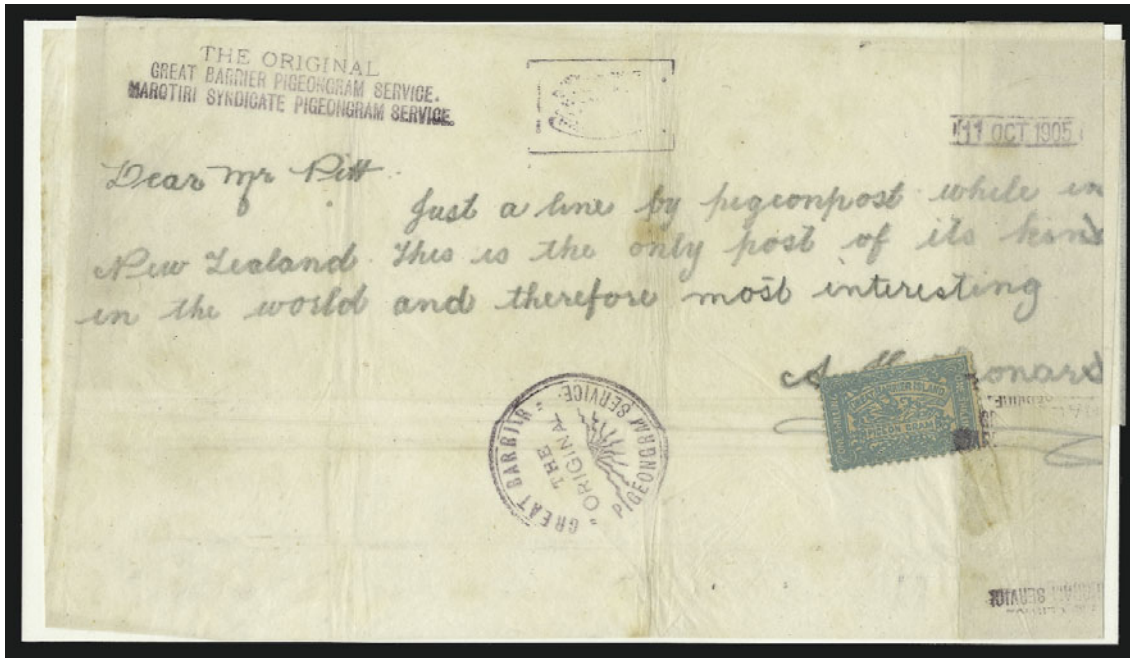 THE ORIGINAL
GREAT BARRIER PIGEONGRAM SERVICE.
MAROTIRI SYNDICATE PIGEONGRAM SERVICE.
11 OCT 1905
Dear Mr Pitt
Just a line by pigeonpost while in
New Zealand This is the only post of its kind
in the world and therefore most interesting
A
onard
PIGEON GRAM
GREAT BARRIER PIGEONGRM SERVICE.
THE
"ORIGINA
SERVICE